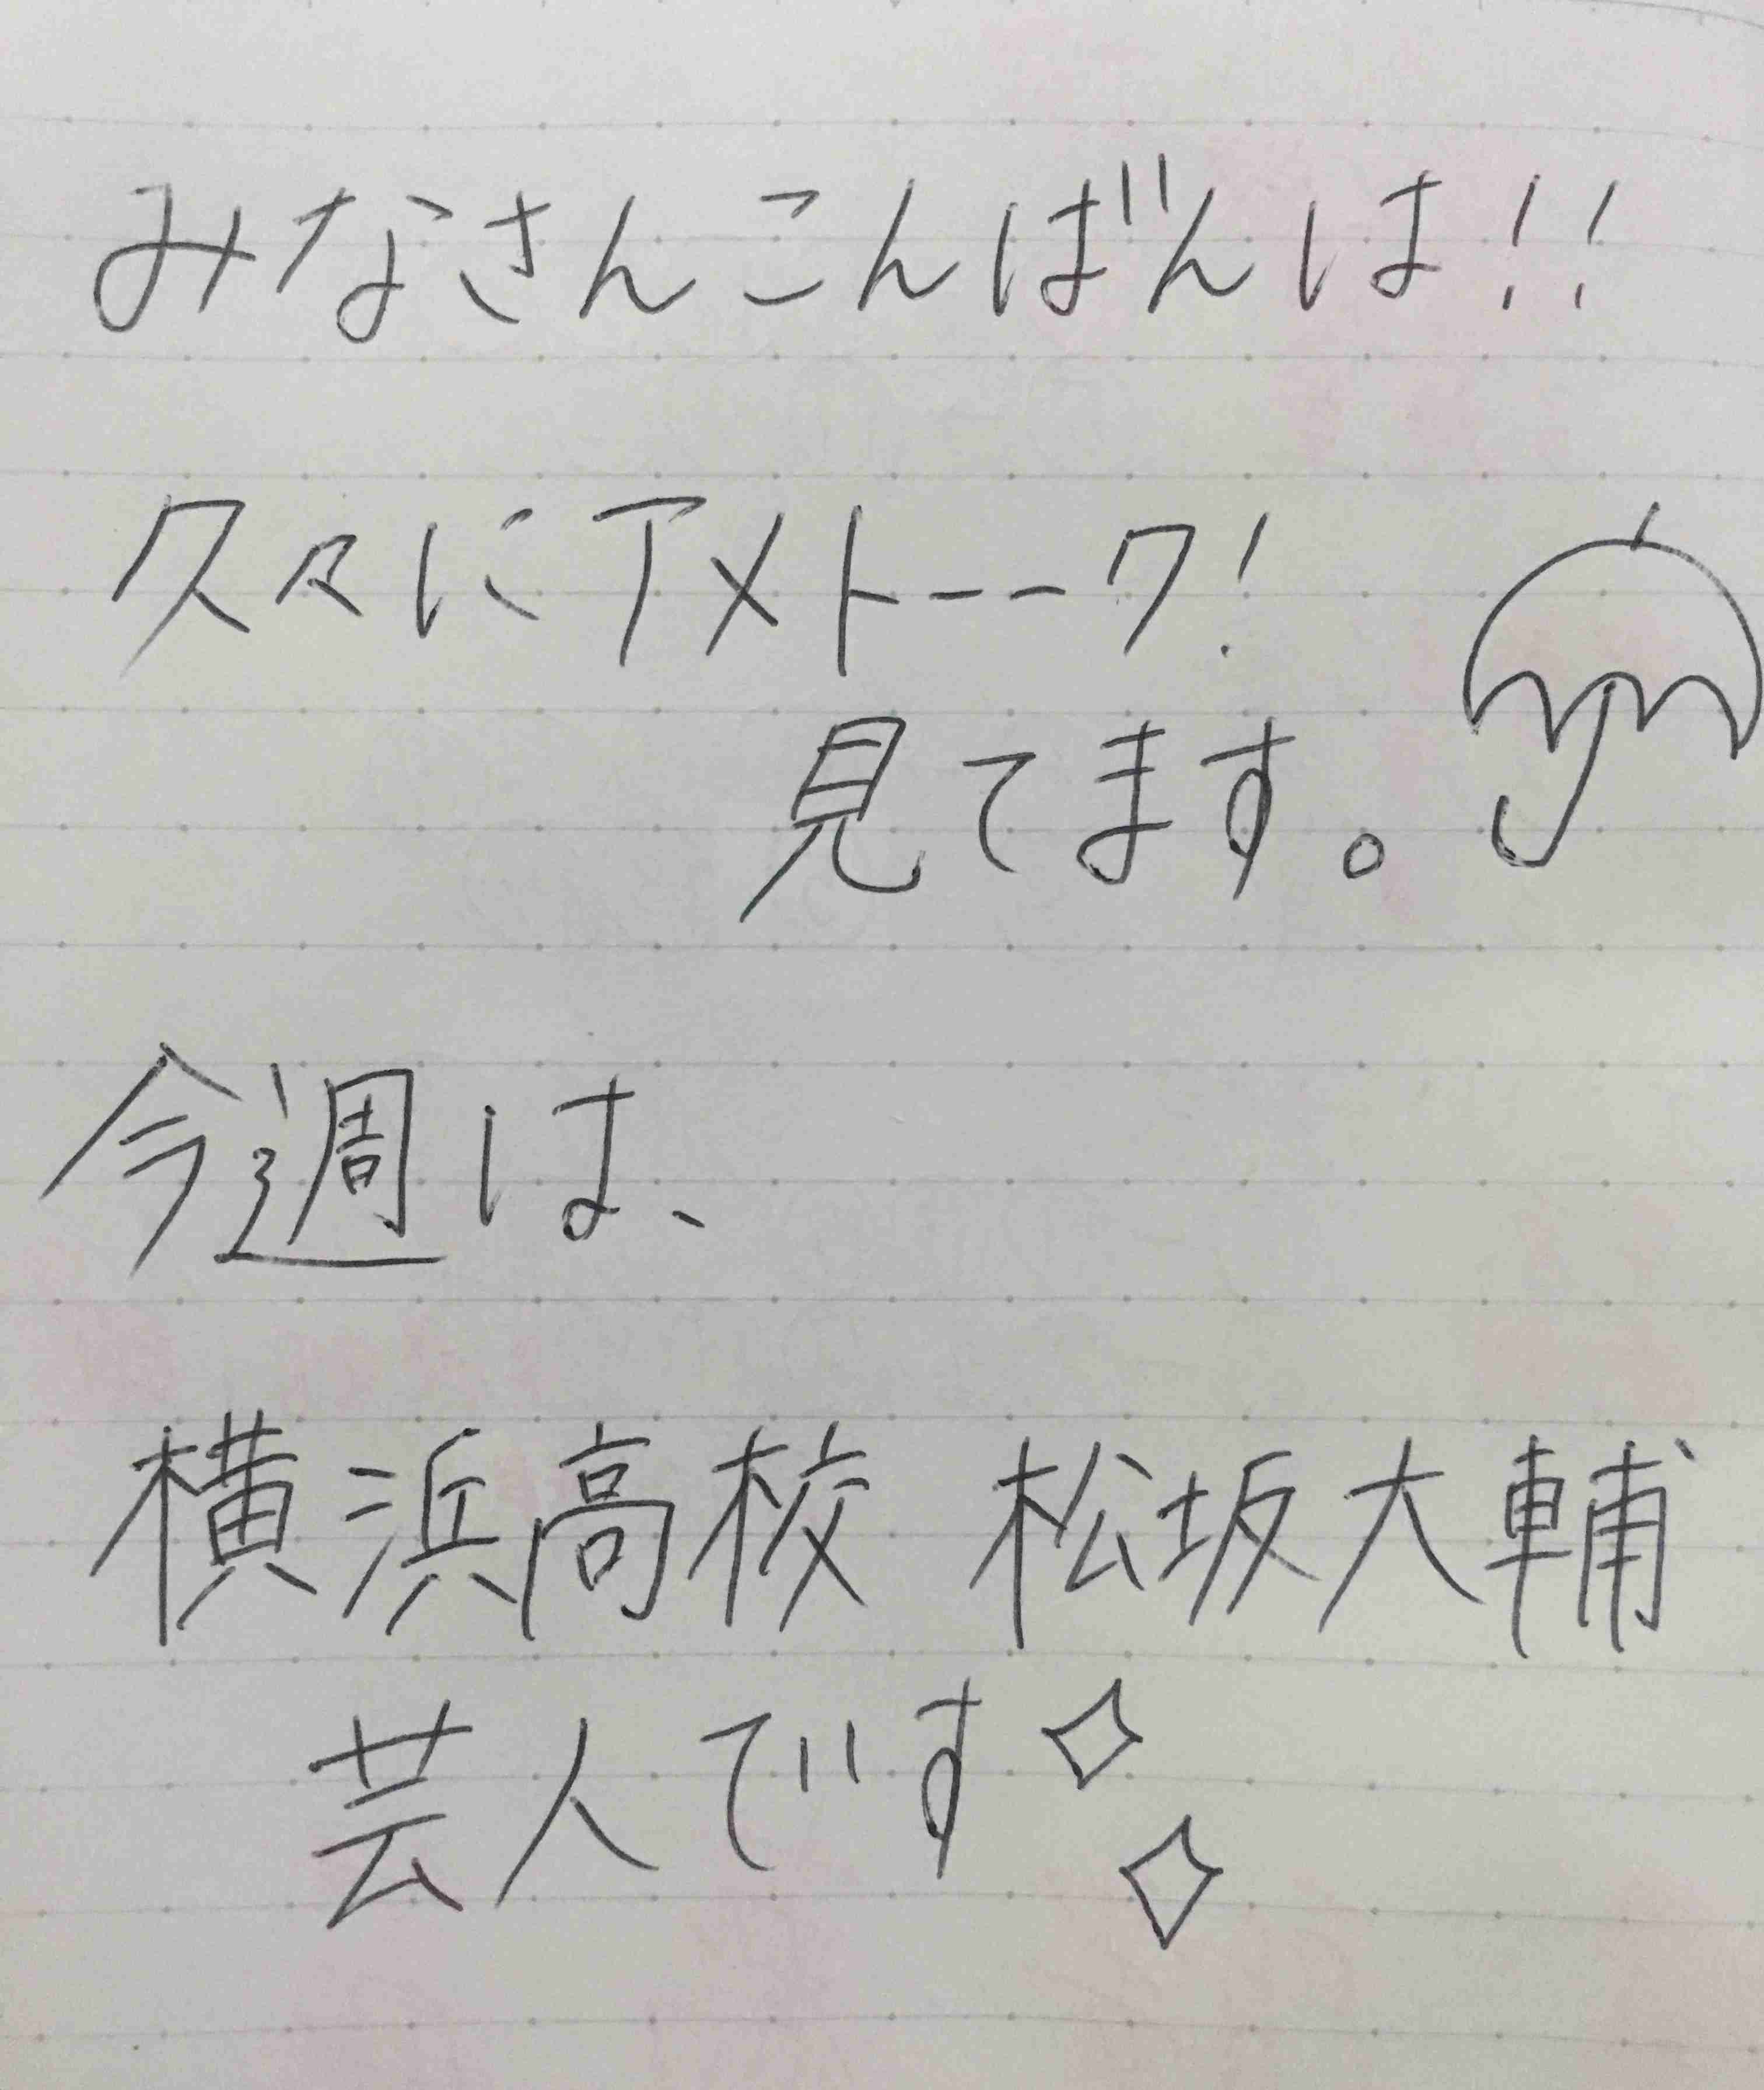 みなさんこんばんは!!
久々にアメトーーク!
見てます。
今週は、
横浜高校 松坂大輔
芸人です